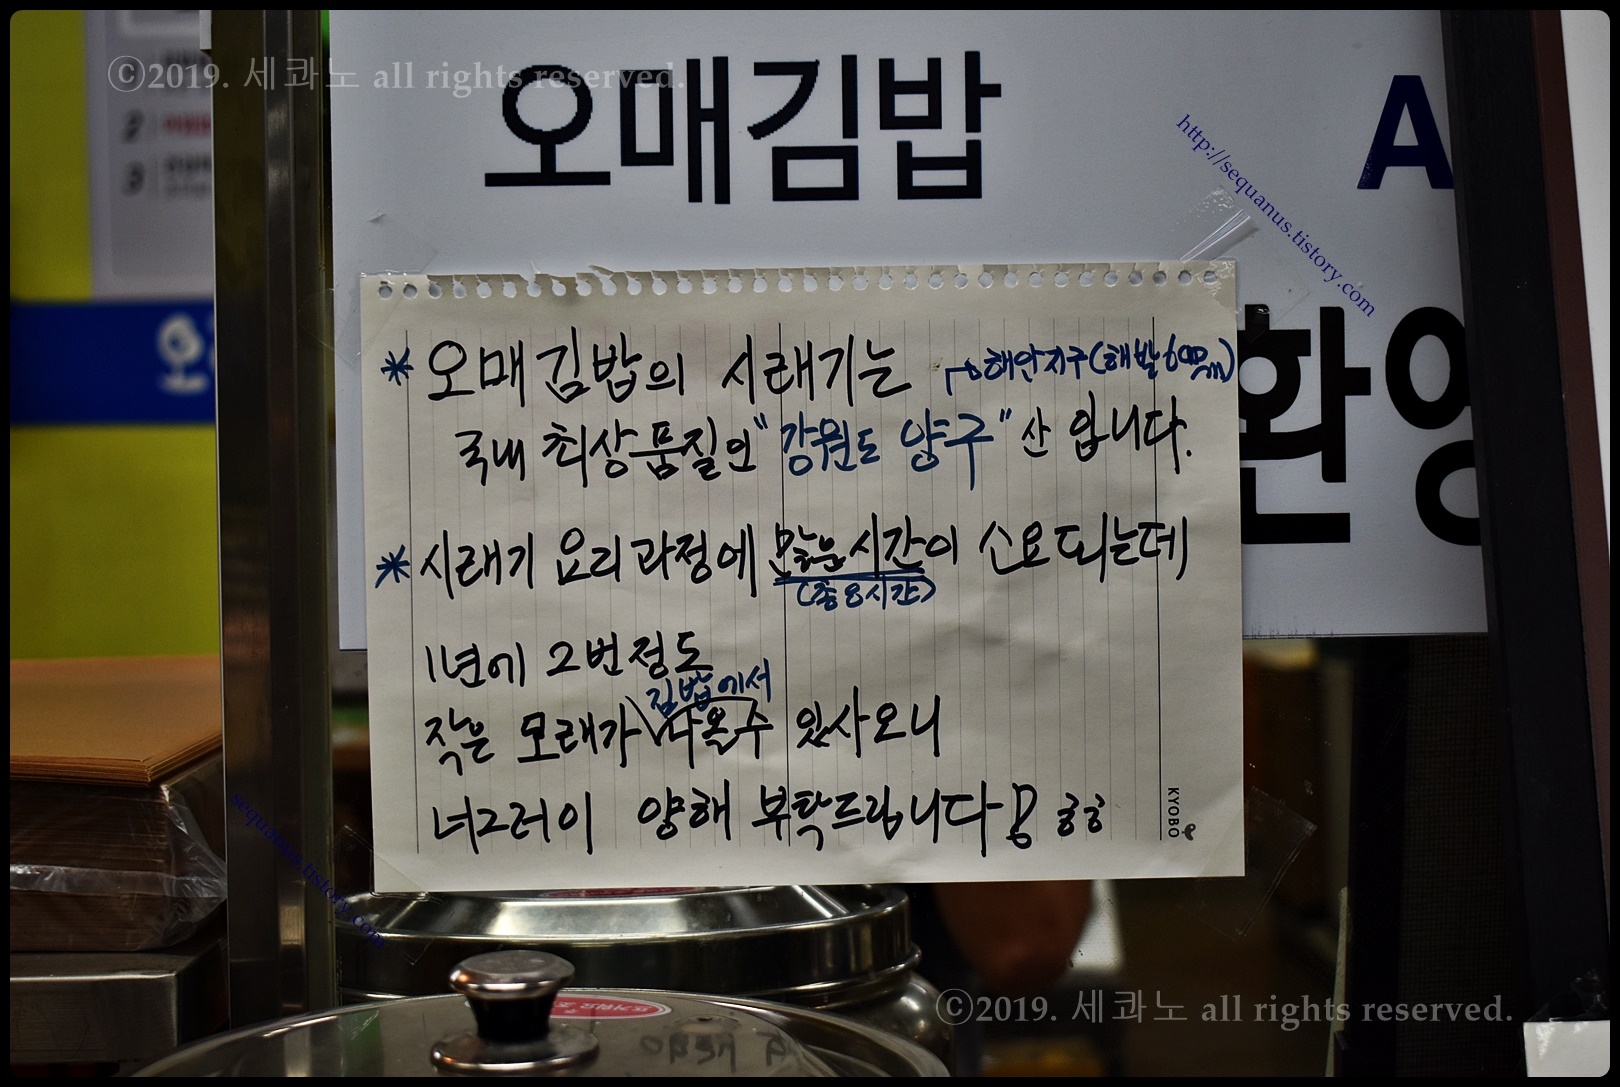 ⓒ2019. 세콰노 all rights reserved.
오매김밥
A
http://sequanus.tistory.com
2
3
환영
* 오매김밥의 시래기는
→해안지구(해발600m)
국내 최상품질인 "강원도 양구"산 입니다.
* 시래기 요리과정에 많은시간이 소요되는데
(총8시간)
1년에 2번정도
김밥에서
작은 모래가 나올수 있사오니
너그러이 양해 부탁드립니다
KYOBO
sequanus.tistory.com
ⓒ2019. 세콰노 all rights reserved.